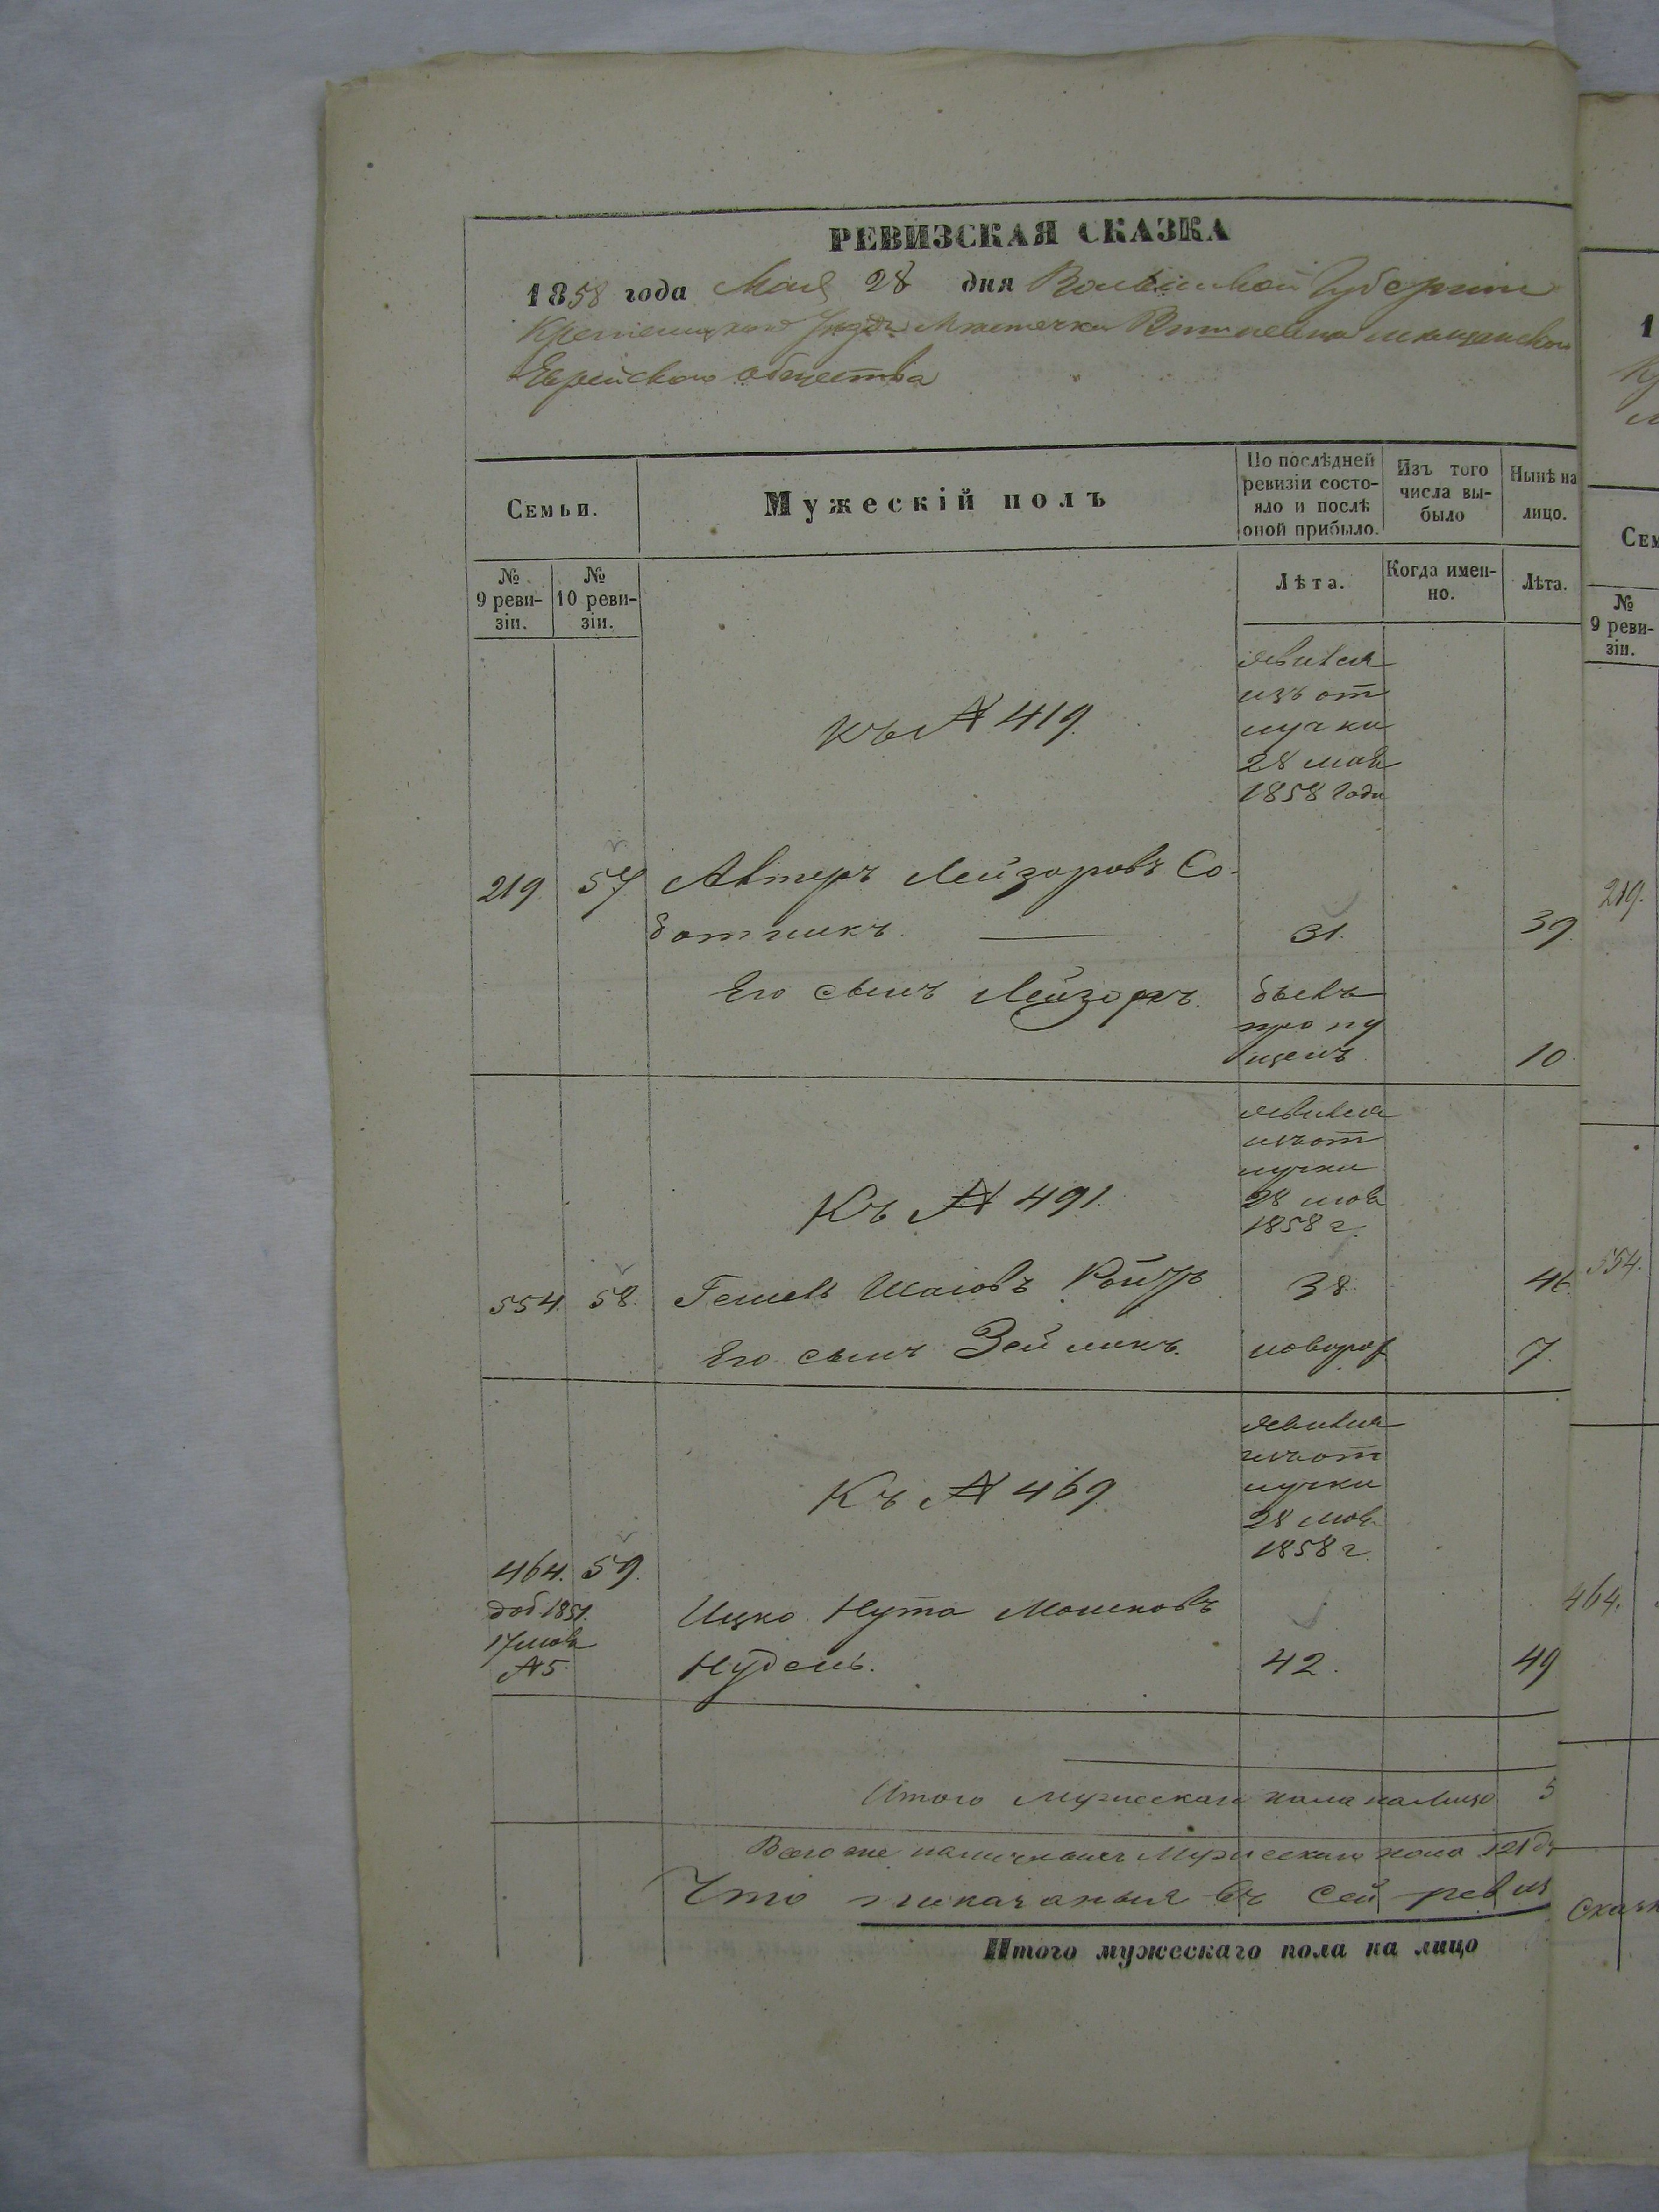 РЕВИЗСКАЯ СКАЗКА
1858 года Мая 28 дня Волынской Губернии
Кременецкаго Уезда Местечка Вишневца мещанскаго
Еврейскаго общества
Семьи.
Мужескій полъ
По послѣдней ревизіи состо-
яло и послѣ
оной прибыло.
Изъ того
числа вы-
было
Нынѣ на
лицо.
№
9 реви-
зіи.
№
10 реви-
зіи.
Лѣта.
Когда имен-
но.
Лѣта.
явился
изъ от
лучки
28 мая
1858 года
къ № 419.
219 57 Автеръ Лейзоровъ Со-
ботникъ. 31. 39.
Его сынъ Лейзоръ. былъ
пропу
щенъ 10
явился
изъ от
лучки
28 мая
1858 г.
Къ № 491.
554. 58. Гешель Шаговъ 38 46
Его сынъ Зейликъ. новорож 7.
явился
изъ от
лучки
28 мая
1858 г.
Къ № 469.
464. 59.
доб. 1851.
17 мая
№ 5
Ицко Нута Мошковъ
Нудель. 42. 49
Итого мужескаго пола на лицо 5
Всего же наличныхъ Мужескаго пола 121
Что показаныя въ сей ревиз
Итого мужескаго пола на лицо
1
Сем
№
9 реви-
зіи.
219.
554.
464.